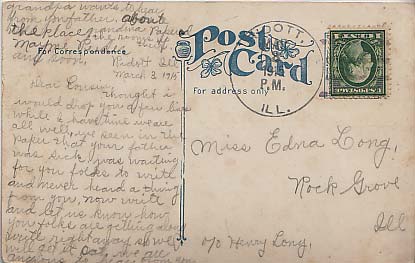 grandpa wants to hear
from you father about
the place grandma
For Correspondence
any soon.
Ridott Ill
March 3, 1915
Dear Cousin:
Thought I
would drop you a few lines
while I have time we are
all well, we seen in the
paper that your father
was sick, was waiting
for you folks to write
and never heard a thing
from you, now write
and let us know how
you folks are getting along
write right away so we
will get it Sat, we are
anxious to hear from you
Post
Card
For address only
RIDOTT,
P.M.
ILL.
Miss Edna Long,
Rock Grove
Ill
c/o Henry Long,